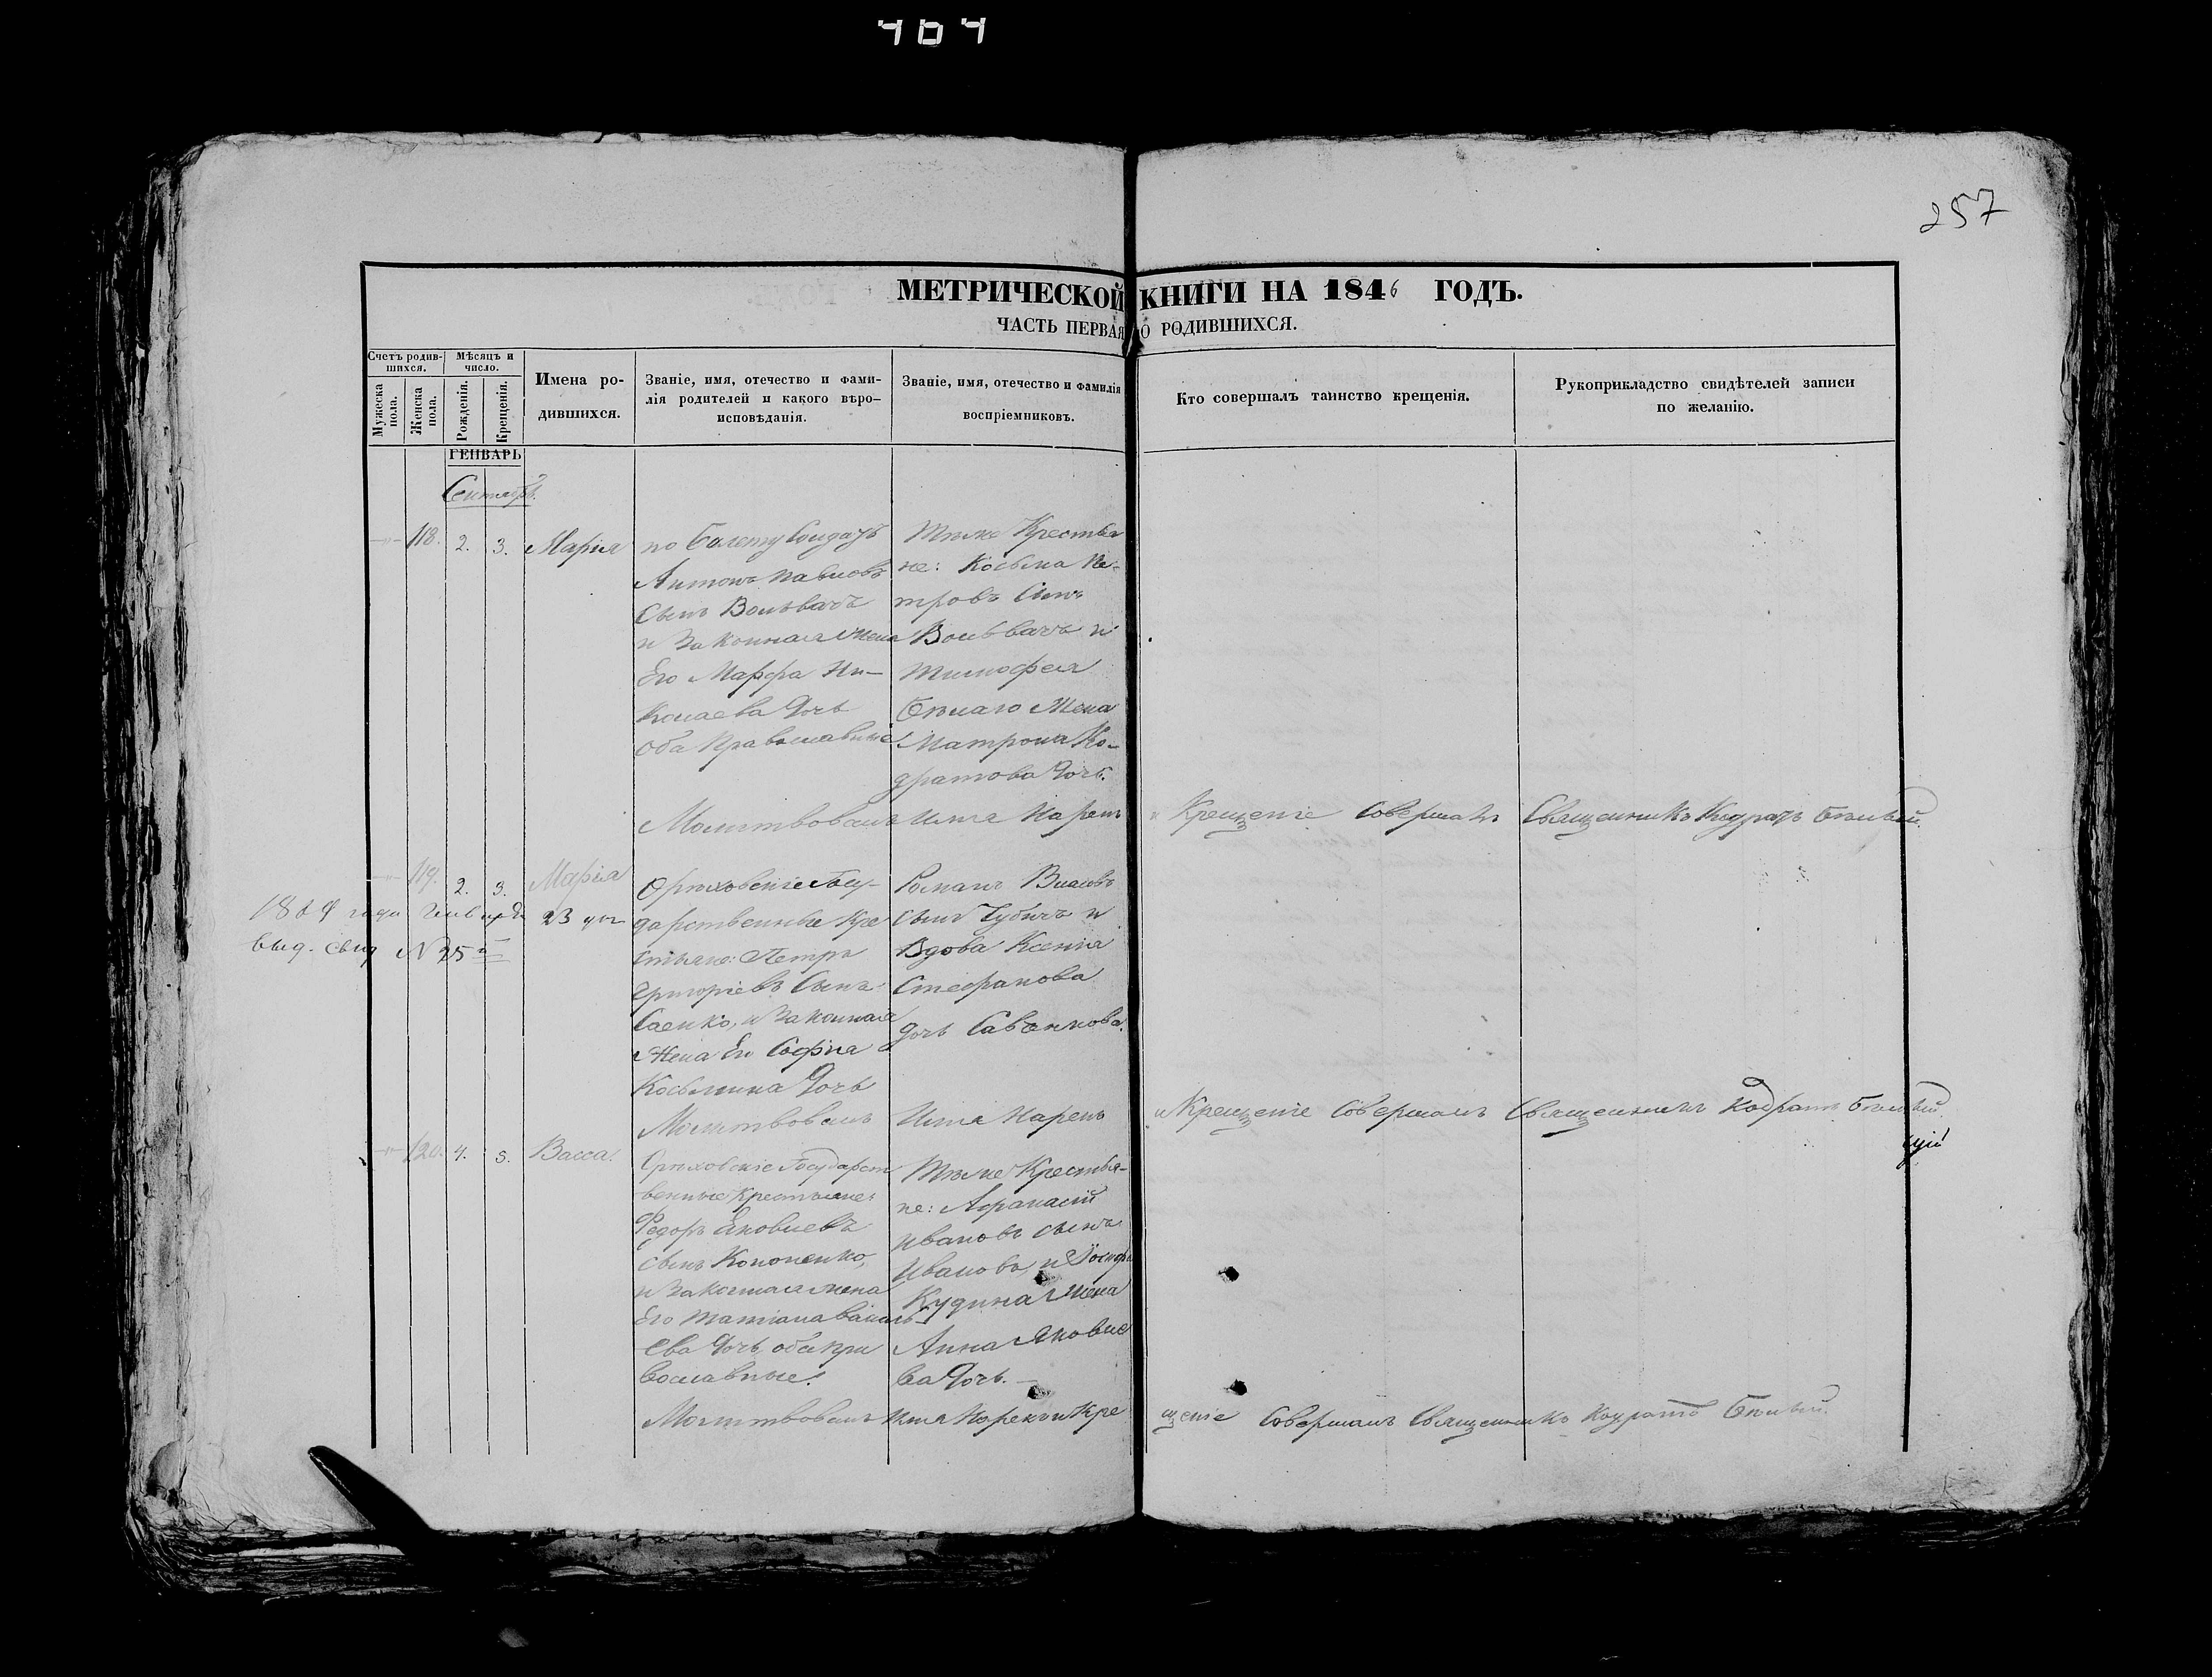 257
МЕТРИЧЕСКОЙ КНИГИ НА 1846 ГОДЪ.
ЧАСТЬ ПЕРВАЯ О РОДИВШИХСЯ.
Счетъ родив-
шихся.
Мѣсяцъ и
число.
Мужеска пола.
Женска пола.
Рожденія.
Крещенія.
Имена ро-
дившихся.
Званіе, имя, отечество и фами-
лія родителей и какого вѣро-
исповѣданія.
Званіе, имя, отечество и фамилія
воспріемниковъ.
Кто совершалъ таинство крещенія.
Рукоприкладство свидѣтелей записи
по желанію.
ГЕНВАРЬ
Сентябрь.
118. 2. 3. Марія
по билету Солдатъ
Антонъ Павловъ
Сынъ Вольвачъ
и Законная Жена
Его Марфа Ни-
колаева Дочь
оба Православные
Тѣже Крестья
не: Косьма Пе-
тровъ Сынъ
Вольвачъ и
Тимофея
Бѣлаго Жена
Матрона Ко-
дратова Дочь.
Молитвовалъ Имя Нарекъ и Крещеніе Совершалъ Священникъ Кодратъ Бѣлый.
119. 2. 3. Марія
Орѣховскіе Госу-
дарственные Кре
стьяне: Петръ
Григоріевъ Сынъ
Саенко, и Законная
Жена Его Софія
Косьмина Дочь
Романъ Власовъ
Сынъ Губичъ и
Вдова Ксенія
Стефанова
дочь Савенкова.
года Января 23 дня
выд. свид № 25
Молитвовалъ Имя Нарекъ и Крещеніе Совершалъ Священникъ Кодратъ Бѣлый.
120. 4. 5. Васса.
Орѣховскіе Государст
венные Крестьяне:
Федоръ Яковлевъ
Сынъ Кононенко,
и Законная жена
Его Татіана
ева Дочь, оба пра
вославные.
Тѣже Крестья-
не: Афанасій
Ивановъ сынъ
Ивановъ, и Іосифа
Кудина Жена
Анна Яковле
ва Дочь.
Молитвовалъ Имя Нарекъ и Кре
щеніе Совершалъ Священникъ Кодратъ Бѣлый.